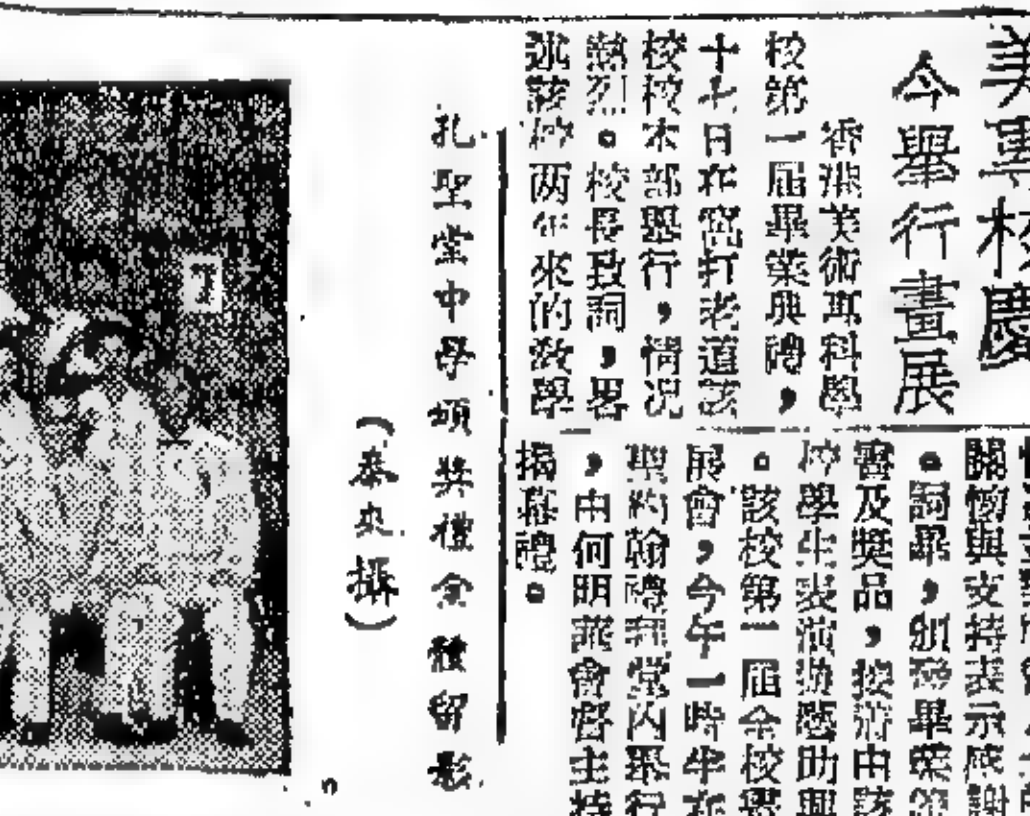 美專校慶
今舉行畫展
香港美術專科學
校第一屆畢業典禮，
十七日在窩打老道該
校校本部舉行，情况
熱烈。校長致詞，畧
述該校两年來的教學
關懷與支持表示感謝
。詞畢，頒發畢業証
書及獎品，接着由該
校學生表演遊藝助興
。該校第一屆全校學
展會，今午一時半在
聖約翰禮拜堂内舉行
，由何明華會督主持
揭幕禮。
孔聖堂中學頒獎禮會後留影
（泰來攝）